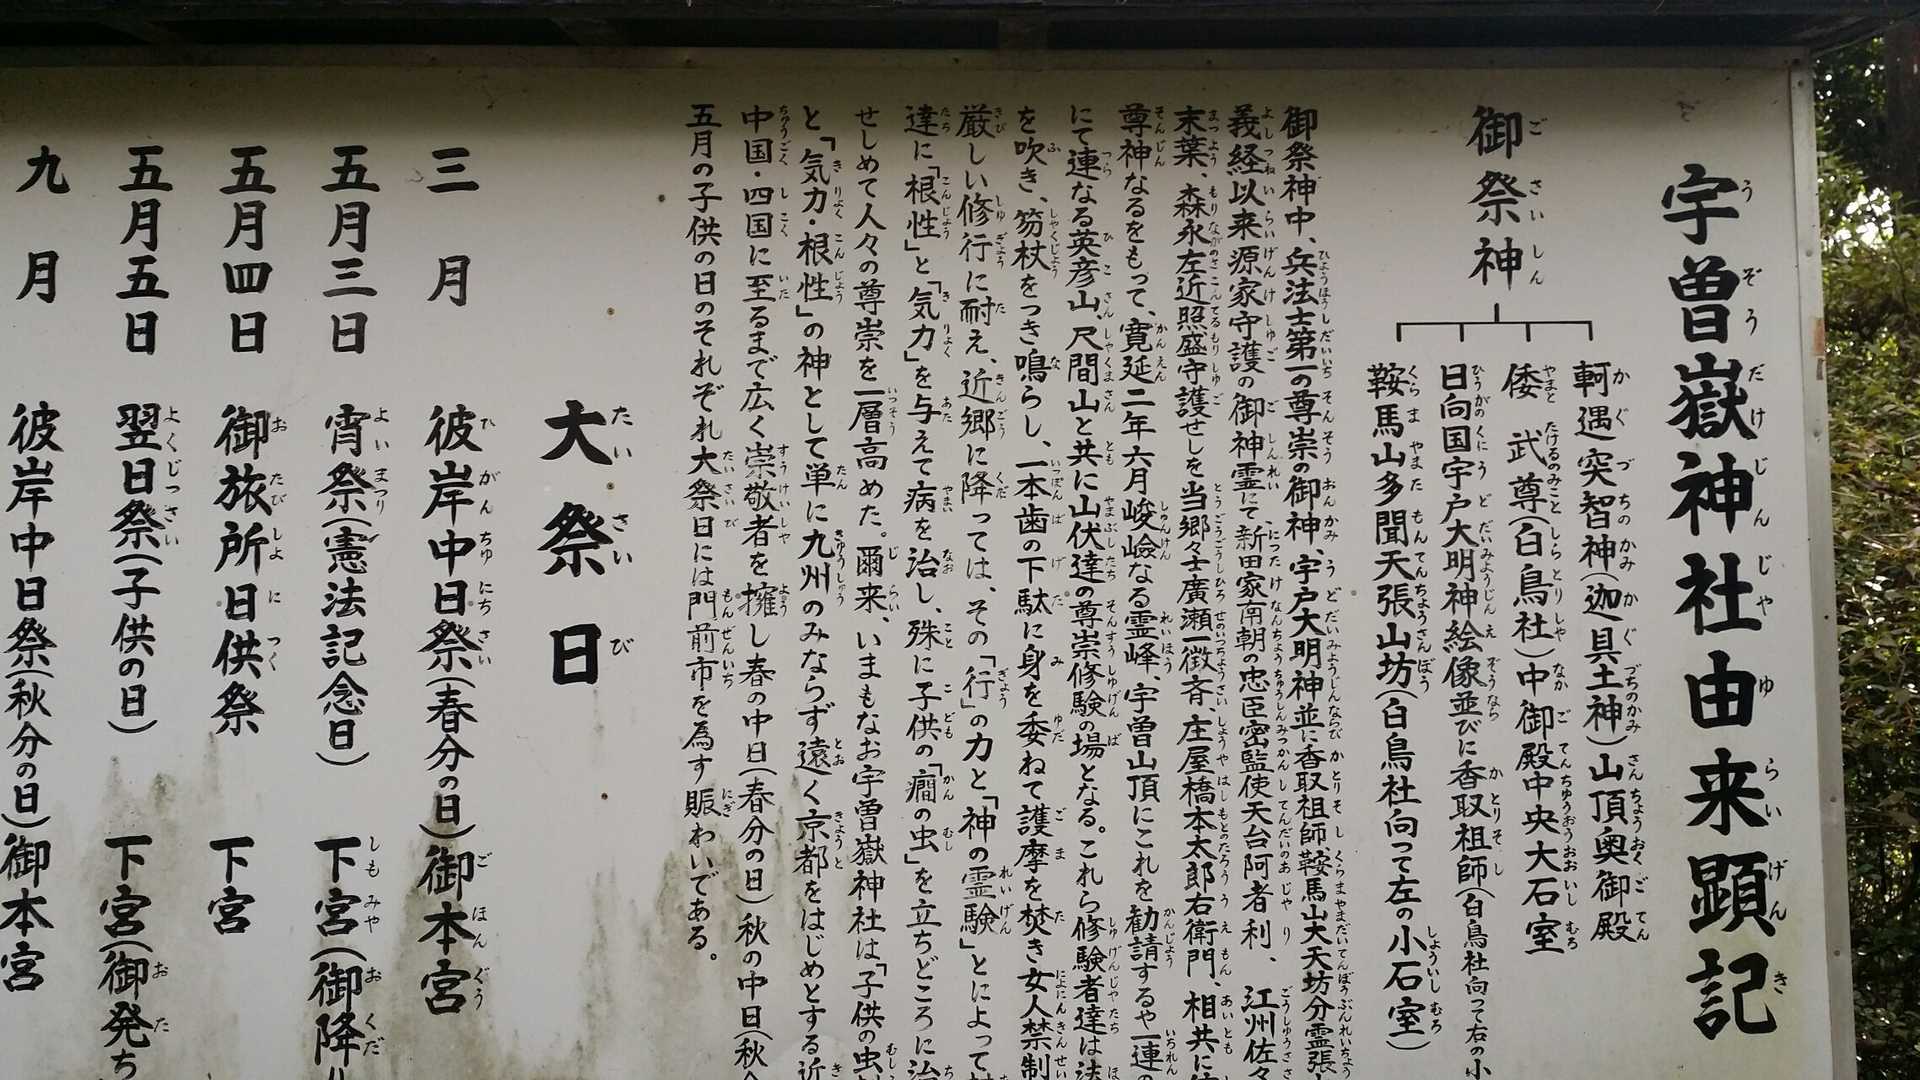 宇曽嶽神社由来顕記
御祭神
軻遇突智神(迦具土神)山頂奥御殿
倭 武尊(白鳥社)中御殿中央大石室
日向国宇戸大明神絵像並びに香取祖師(白鳥社向って右の小
鞍馬山多聞天張山坊(白鳥社向って左の小石室)
御祭神中、兵法士第一の尊崇の御神、宇戸大明神並に香取祖師鞍馬山大天坊分霊張
義経以来源家守護の御神霊にて、新田家南朝の忠臣密監使天台阿者利、江州佐々
末葉、森永左近照盛守護せしを当郷々士廣瀬一徴斉、庄屋橋本太郎右衛門、相共に
尊神なるをもって、寛延二年六月峻嶮なる霊峰、宇曽山頂にこれを勧請するや一連の
にて連なる英彦山、尺間山と共に山伏達の尊崇修験の場となる。これら修験者達は法
を吹き、笏杖をつき鳴らし、一本歯の下駄に身を委ねて護摩を焚き女人禁制
厳しい修行に耐え、近郷に降っては、その「行」の力と「神の霊験」とによって
達に「根性」と「気力」を与えて病を治し、殊に子供の「癇の虫」を立ちどころに治
せしめて人々の尊崇を一層高めた。爾来、いまもなお宇曽嶽神社は「子供の虫
と「気力・根性」の神として単に九州のみならず遠く京都をはじめとする近
中国・四国に至るまで広く崇敬者を擁し春の中日(春分の日)秋の中日(秋
五月の子供の日のそれぞれ大祭日には門前市を為す賑わいである。
大祭日
三月 彼岸中日祭(春分の日)御本宮
五月三日 宵祭(憲法記念日) 下宮(御降
五月四日 御旅所日供祭 下宮
五月五日 翌日祭(子供の日) 下宮(御発ち
九月 彼岸中日祭(秋分の日)御本宮